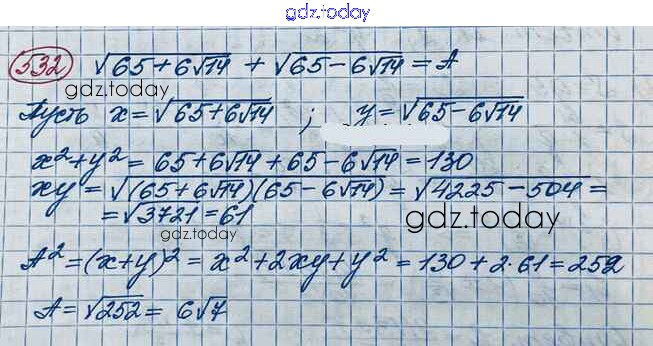 gdz.today
532 √65+6√14 + √65-6√14 = A
gdz.today
Пусть x = √65+6√14 ; y = √65-6√14
x² + y² = 65+6√14 + 65-6√14 = 130
xy = √(65+6√14)(65-6√14) = √4225-504 =
= √3721 = 61
gdz.today
gdz.today
A² = (x+y)² = x² + 2xy + y² = 130 + 2·61 = 252
A = √252 = 6√7